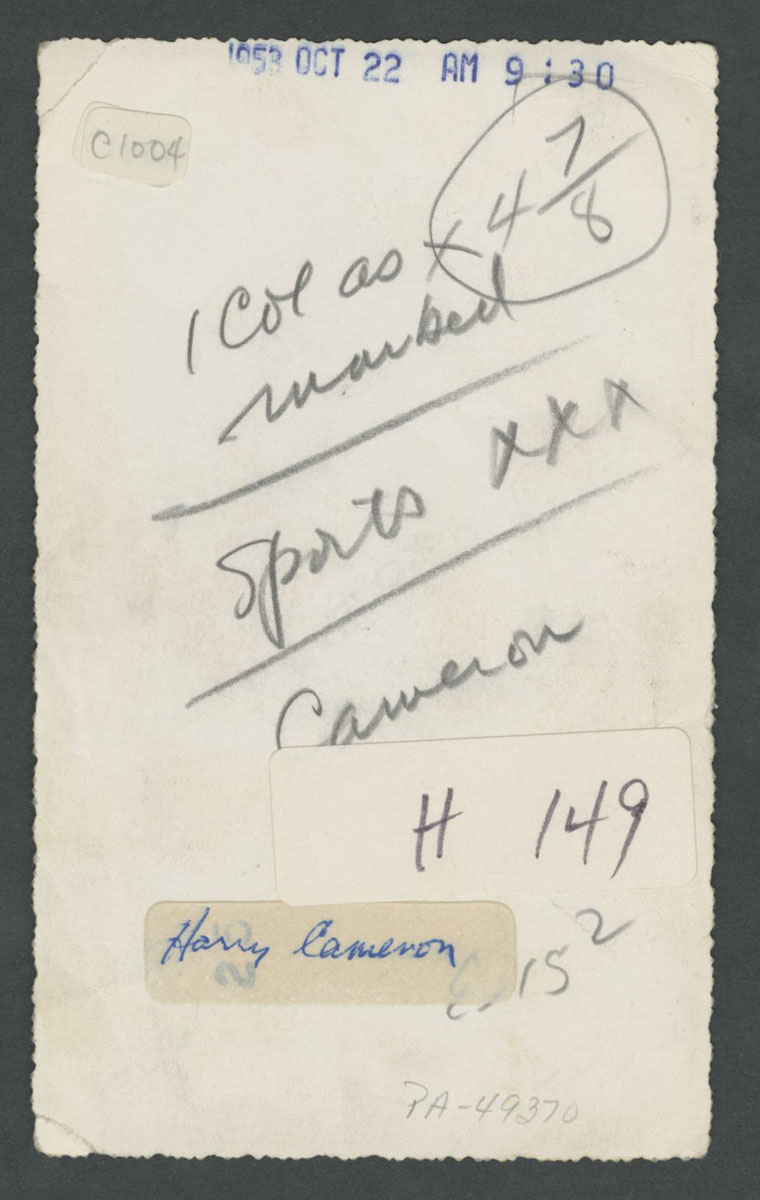 1953 OCT 22 AM 9:30
C1004
1 Col as x 4 7/8
marked
Sports xxx
Cameron
H 149
Harry Cameron
15 2
PA-49370